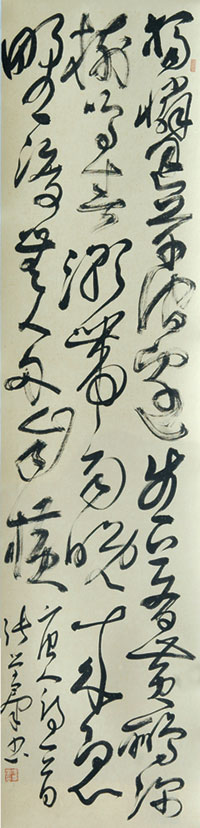 獨憐幽草澗邊生上有黃鸝深
樹鳴春潮帶雨晚來急
野渡無人舟自橫
唐人詩一首
張書